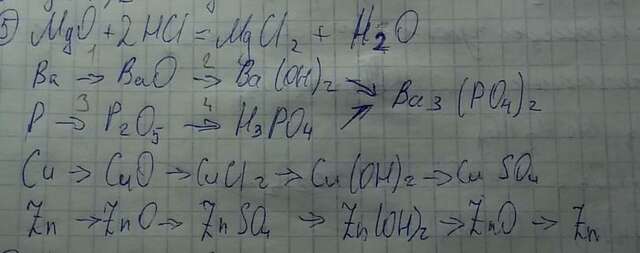 5) MgO + 2HCl = MgCl2 + H2O
Ba 1→ BaO 2→ Ba(OH)2 ↘
Ba3(PO4)2
P 3→ P2O5 4→ H3PO4 ↗
Cu → CuO → CuCl2 → Cu(OH)2 → CuSO4
Zn → ZnO → ZnSO4 → Zn(OH)2 → ZnO → Zn